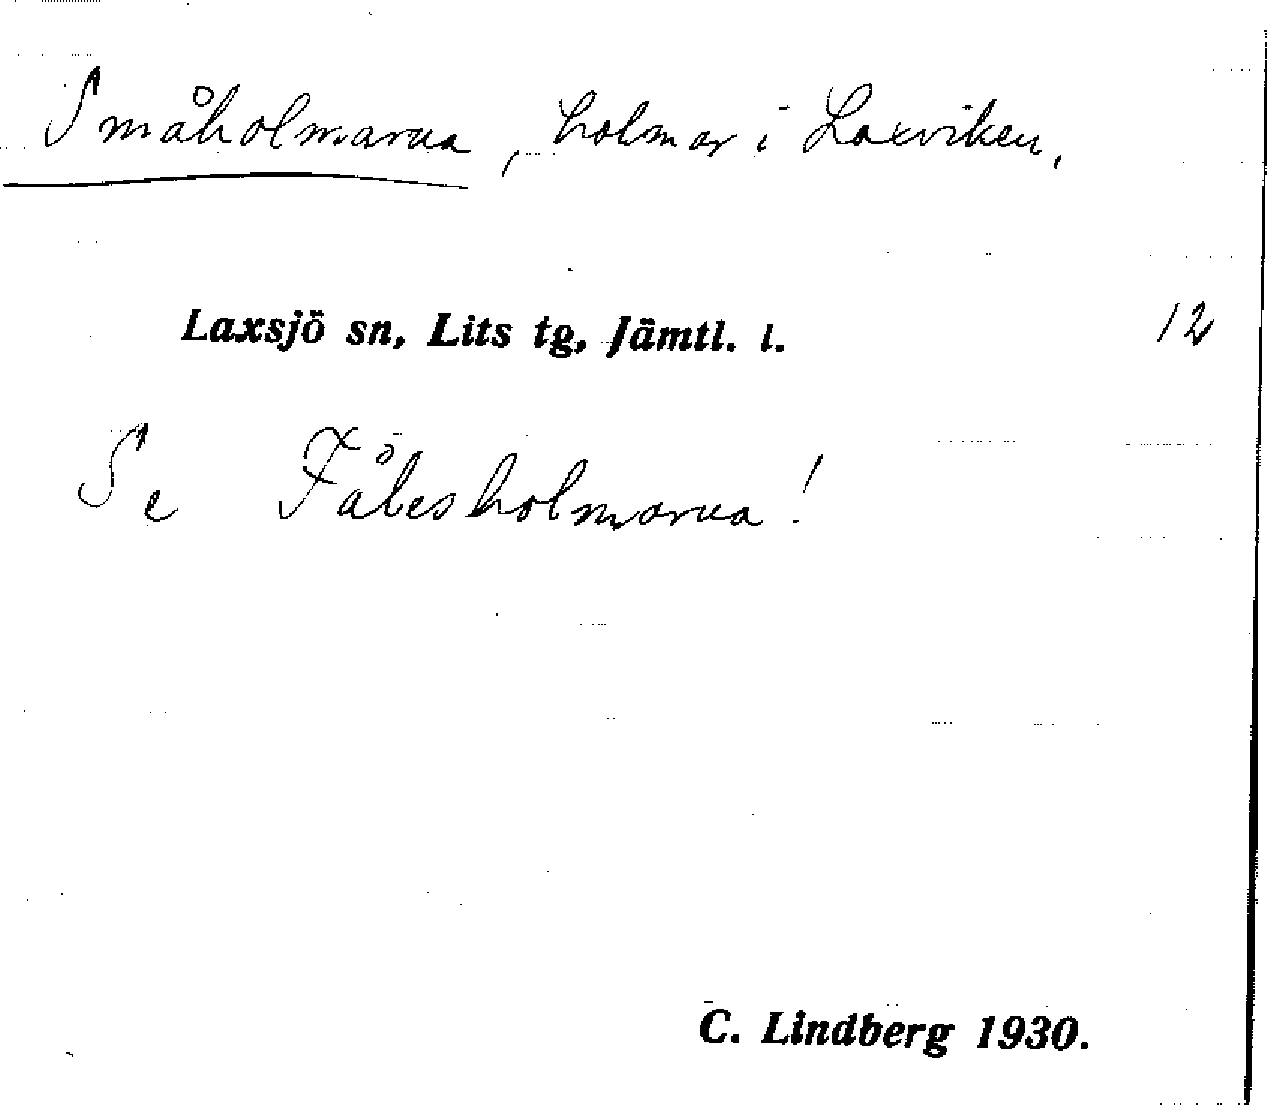 Småholmarna, holmar i Laxviken.
Laxsjö sn, Lits tg, Jämtl. l. 12
Se Fålesholmarna!
C. Lindberg 1930.